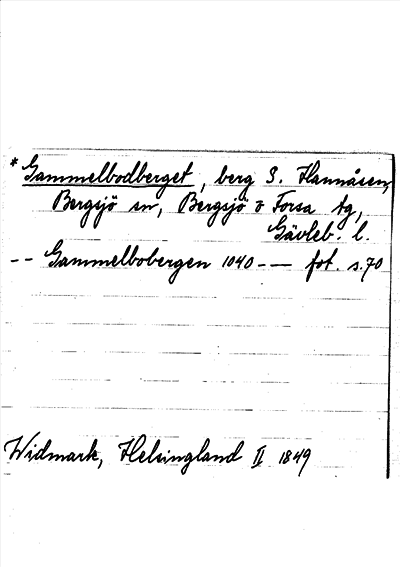 * Gammelbodberget, berg S. Hannåsen,
Bergsjö sn, Bergsjö o Forsa tg,
Gävleb. l.
-- Gammelbobergen 1040 -- fot. s.70
Widmark, Helsingland II 1849